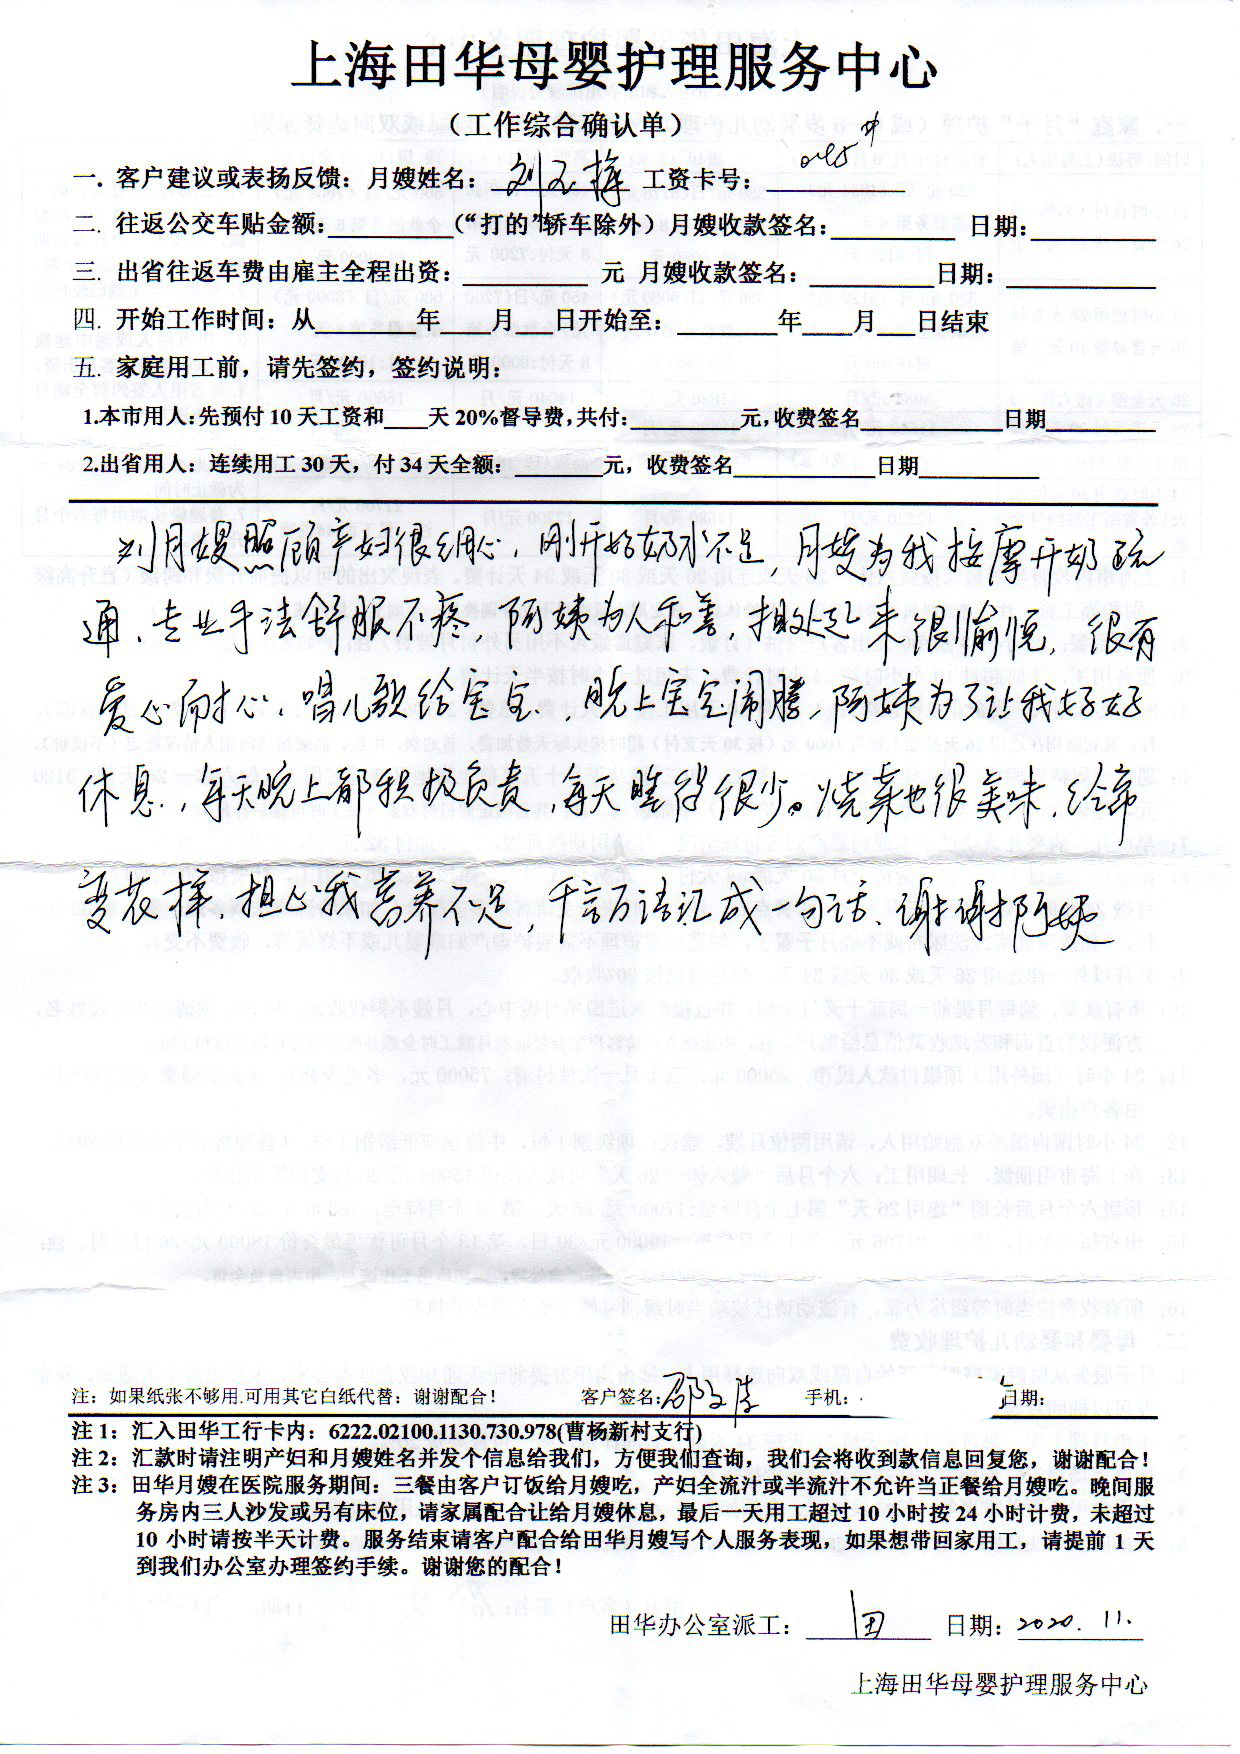 上海田华母婴护理服务中心
(工作综合确认单)
一. 客户建议或表扬反馈：月嫂姓名：刘玉梅 工资卡号：
二. 往返公交车贴金额：（“打的”轿车除外）月嫂收款签名： 日期：
三. 出省往返车费由雇主全程出资： 元 月嫂收款签名： 日期：
四. 开始工作时间：从 年 月 日开始至： 年 月 日结束
五. 家庭用工前，请先签约，签约说明：
1.本市用人：先预付10天工资和____天20%督导费，共付： 元，收费签名 日期
2.出省用人：连续用工30天，付34天全额： 元，收费签名 日期
刘月嫂照顾产妇很细心，刚开始奶水不足，月嫂为我按摩开奶疏
通、专业手法舒服不疼，阿姨为人和善，相处起来很愉悦，很有
爱心耐心，唱儿歌给宝宝，晚上宝宝闹腾，阿姨为了让我好好
休息，每天晚上都积极负责，每天睡得很少。烧菜也很美味，给常
变花样，担心我营养不足，千言万语汇成一句话、谢谢阿姨
注：如果纸张不够用.可用其它白纸代替：谢谢配合！ 客户签名: 手机: 日期:
注1：汇入田华工行卡内：6222.02100.1130.730.978(曹杨新村支行)
注2：汇款时请注明产妇和月嫂姓名并发个信息给我们，方便我们查询，我们会将收到款信息回复您，谢谢配合！
注3：田华月嫂在医院服务期间：三餐由客户订饭给月嫂吃，产妇全流汁或半流汁不允许当正餐给月嫂吃。晚间服
务房内三人沙发或另有床位，请家属配合让给月嫂休息，最后一天用工超过10小时按24小时计费，未超过
10小时请按半天计费。服务结束请客户配合给田华月嫂写个人服务表现，如果想带回家用工，请提前1天
到我们办公室办理签约手续。谢谢您的配合！
田华办公室派工： 田 日期：2020.11.
上海田华母婴护理服务中心